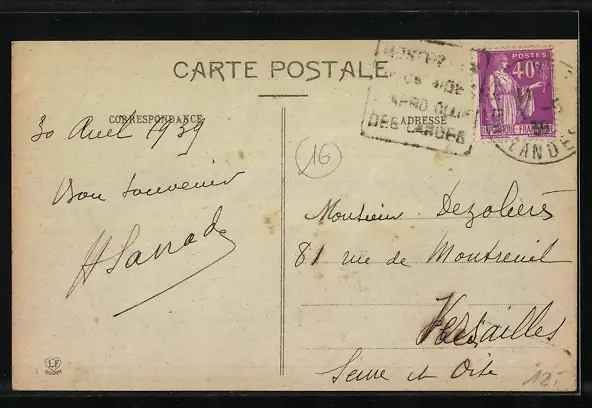 CARTE POSTALE
CORRESPONDANCE
ADRESSE
POSTES
40c
DES LANDES
LANDES
30 Avril 1939
16
Bon souvenir
Monsieur Dezolières
81 rue de Montreuil
Versailles
Seine et Oise
LF
12